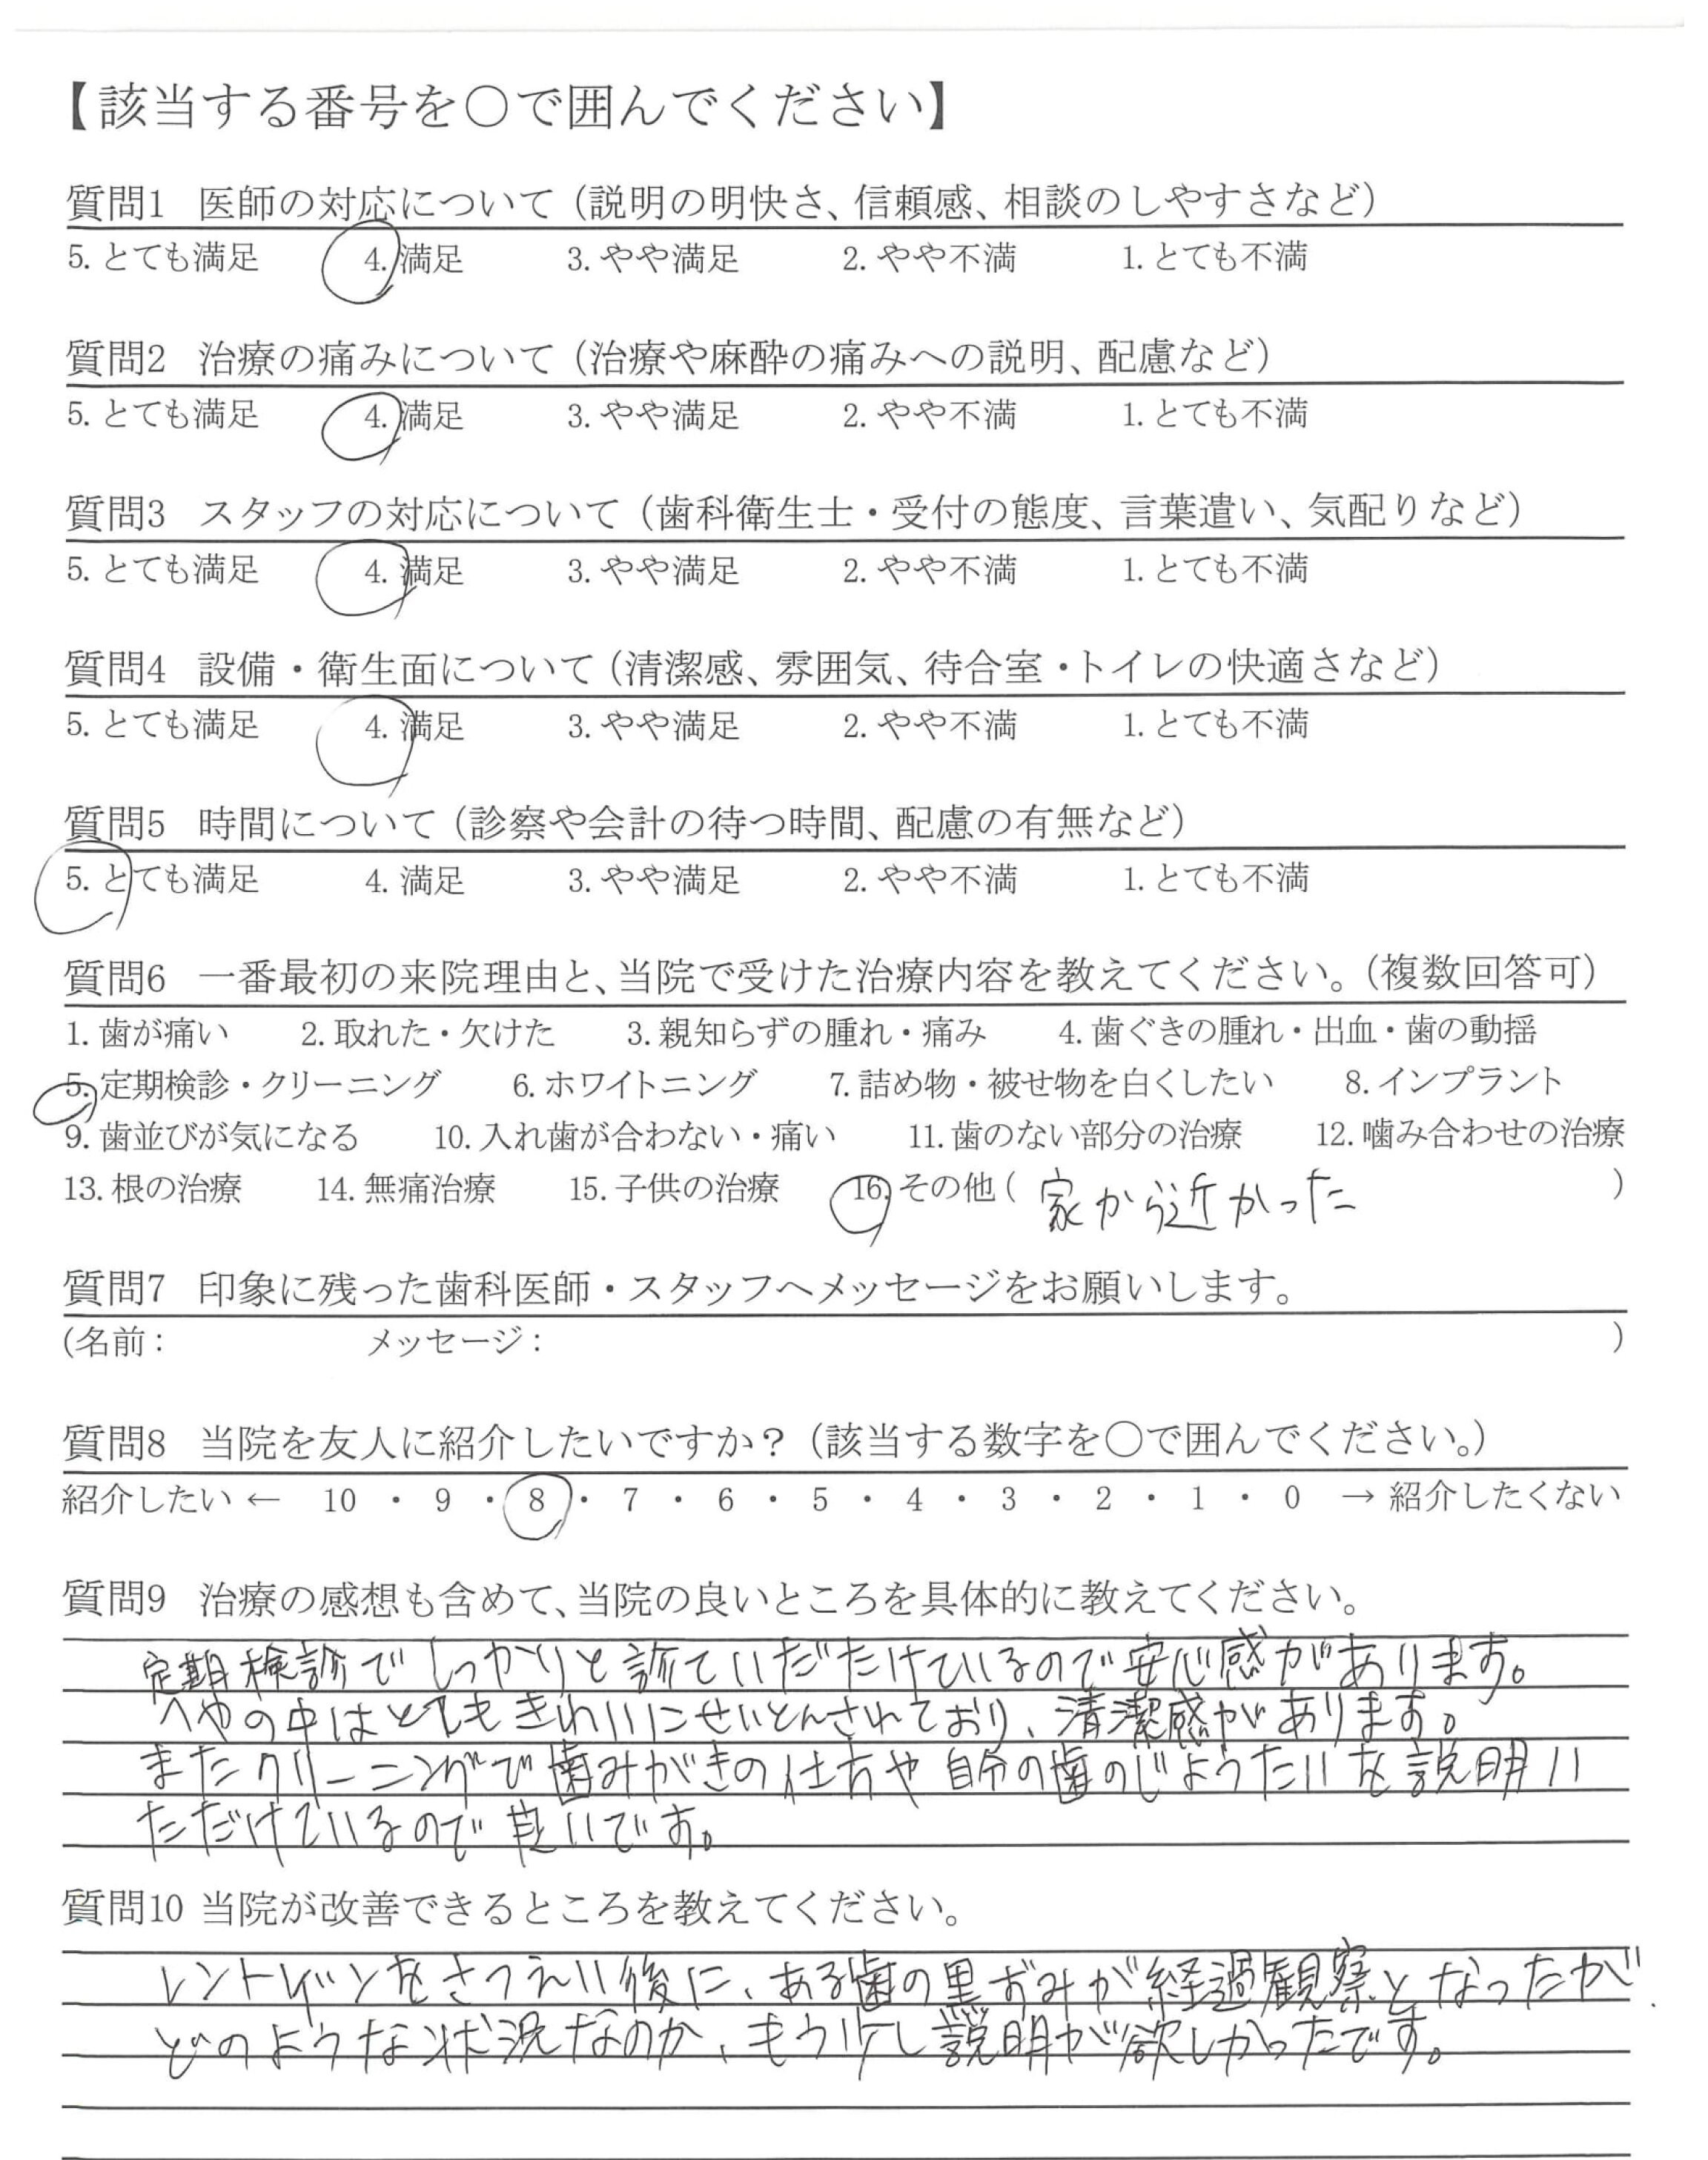 【該当する番号を○で囲んでください】
質問1 医師の対応について（説明の明快さ、信頼感、相談のしやすさなど）
5. とても満足 4. 満足 3. やや満足 2. やや不満 1. とても不満
質問2 治療の痛みについて（治療や麻酔の痛みへの説明、配慮など）
5. とても満足 4. 満足 3. やや満足 2. やや不満 1. とても不満
質問3 スタッフの対応について（歯科衛生士・受付の態度、言葉遣い、気配りなど）
5. とても満足 4. 満足 3. やや満足 2. やや不満 1. とても不満
質問4 設備・衛生面について（清潔感、雰囲気、待合室・トイレの快適さなど）
5. とても満足 4. 満足 3. やや満足 2. やや不満 1. とても不満
質問5 時間について（診察や会計の待つ時間、配慮の有無など）
5. とても満足 4. 満足 3. やや満足 2. やや不満 1. とても不満
質問6 一番最初の来院理由と、当院で受けた治療内容を教えてください。（複数回答可）
1. 歯が痛い 2. 取れた・欠けた 3. 親知らずの腫れ・痛み 4. 歯ぐきの腫れ・出血・歯の動揺
5. 定期検診・クリーニング 6. ホワイトニング 7. 詰め物・被せ物を白くしたい 8. インプラント
9. 歯並びが気になる 10. 入れ歯が合わない・痛い 11. 歯のない部分の治療 12. 噛み合わせの治療
13. 根の治療 14. 無痛治療 15. 子供の治療 16. その他（ 家から近かった ）
質問7 印象に残った歯科医師・スタッフへメッセージをお願いします。
（名前： メッセージ： ）
質問8 当院を友人に紹介したいですか？（該当する数字を○で囲んでください。）
紹介したい ← 10 ・ 9 ・ 8 ・ 7 ・ 6 ・ 5 ・ 4 ・ 3 ・ 2 ・ 1 ・ 0 → 紹介したくない
質問9 治療の感想も含めて、当院の良いところを具体的に教えてください。
定期検診でしっかりと診ていだたけているので安心感があります。
へやの中はとてもきれいにせいとんされており、清潔感があります。
またクリーニングで歯みがきの仕方や自分の歯のじょうたいを説明い
ただけているので良いです。
質問10 当院が改善できるところを教えてください。
レントゲンをさつえい後に、ある歯の黒ずみが経過観察となったが
どのような状況なのか、もう少し説明が欲しかったです。